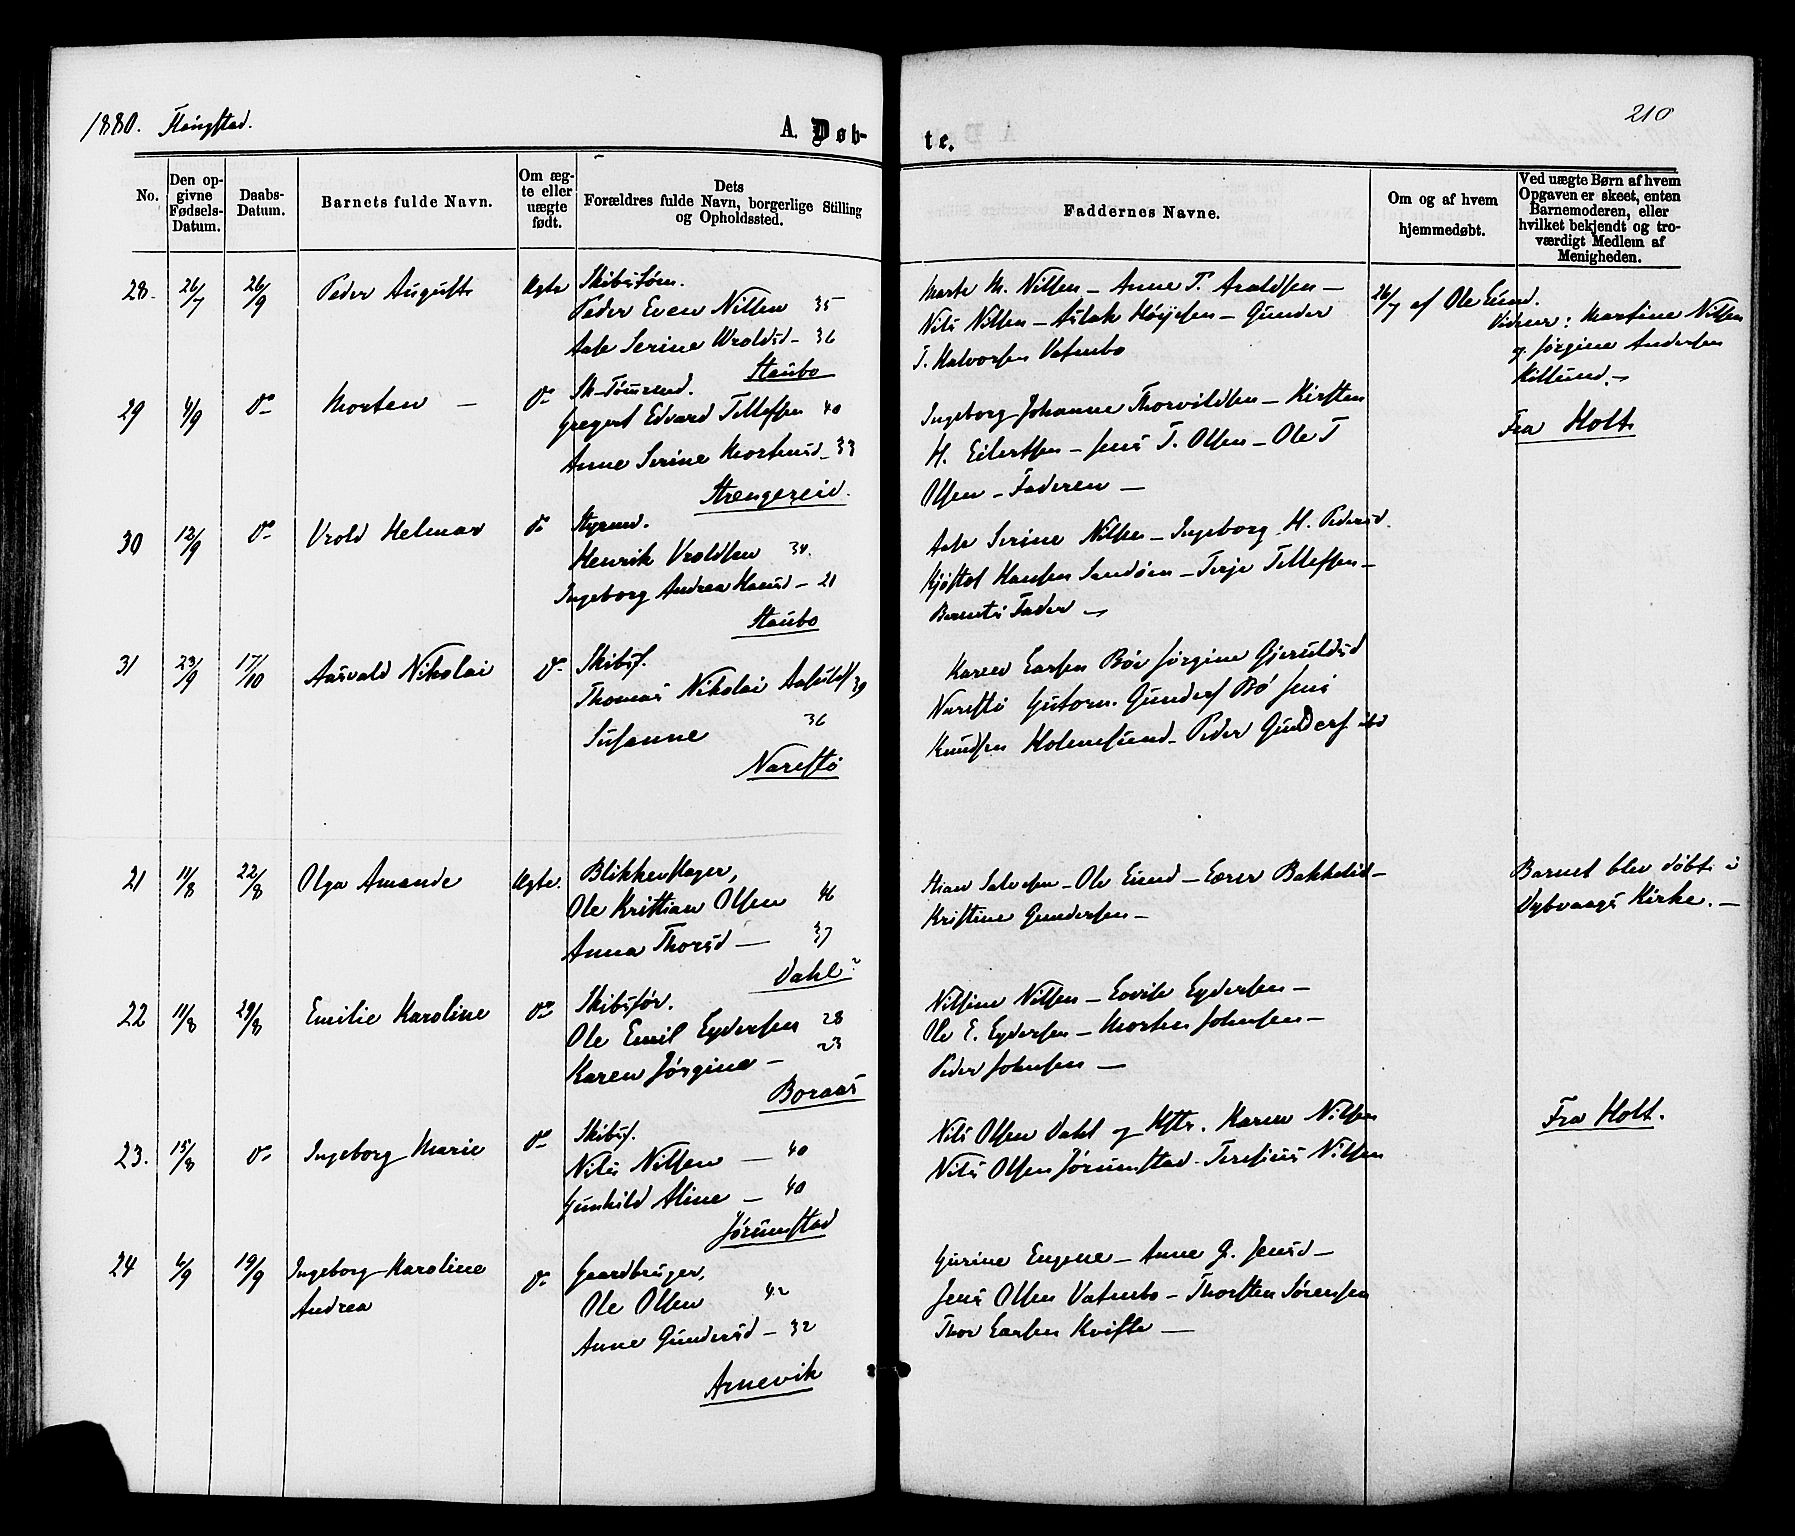 1880. Flangstad.
A. Døb-
te.
210
No.
Den opgivne Fødsels-Datum.
Daabs-Datum.
Barnets fulde Navn.
Om ægte eller uægte født.
Dets Forældres fulde Navn, borgerlige Stilling og Opholdssted.
Faddernes Navne.
Om og af hvem hjemmedøbt.
Ved uægte Børn af hvem Opgaven er skeet, enten Barnemoderen, eller hvilket bekjendt og troværdigt Medlem af Menigheden.
28. 26/7 26/9 Peder August Ægte
Skibstøm.
Peder Even Nilsen 35
Aase Serine Vroldsd - 36
Staubo
Marte M. Nilsen - Anne T. Araldsen -
Nils Nilsen - Aslak - Gunder
T. Halvorsen Vatnebo
26/7 af Ole Lund.
Vidner: Martine Nilsen
og Jørgine Andersen
Killund. -
29 4/9 do Morten - do
Sk-Tømrmd.
Gregert Edvard Tellefsen 40
Anne Serine Mortensd - 33
Strengereid.
Ingeborg Johanne Thorvildsen - Kirsten
H. Eilertsen - Jens T. Olsen - Ole T
Olsen - Faderen -
Fra Holt
30 12/9 do Vrold Helmar do
Styrmd.
Henrik Vroldsen 34.
Ingeborg Andrea Hansd - 21
Staubo
Aase Serine Nilsen - Ingeborg H. Pedersd.
Kjøstof Hansen Sandøen - Terje Tellefsen -
Barnets Fader -
31 23/9 17/10 Aasvald Nikolai do
Skibsf.
Thomas Nikolai 39
Susanne 36
Narestø
Karen Larsen Bøe Jørgine Gjeruldsd
Narestø Gutorm Gundersf Bø Jens
Knudsen Holmesund - Peder Gundersf. ibd
21 11/8 22/8 Olga Amande Ægte.
Blikkenslager,
Ole Kristian Olsen 46
Anna Thorsd - 37
Dahl
Salvesen - Ole Lund - Bakkelid -
Kristine Gundersen -
Barnet blev døbt i
Dybvaags Kirke. -
22 11/8 29/8 Emilie Karoline do
Skibsfør.
Ole Emil Eydersen 28
Karen Jørgine - 23
Boraas
Nilsine Nilsen - Lovise Eydersen -
Ole E. Eydersen - Morten Johnsen -
Peder Johnsen -
23. 15/8 do Ingeborg Marie do
Skibsf.
Nils Nilsen - 40
Gunhild Aline - 40
Jørunstad
Nils Olsen Dahl og Hstr. Karen Nilsen
Nils Olsen Jørumstad - Teresius Nilsen
Fra Holt.
24 6/9 19/9 Ingeborg Karoline do
Andrea
Gaardbruger,
Ole Olsen 42
Anne Gundersd - 32
Arnevik
Gurine Eugene - Anne G. Jensd -
Jens Olsen Vatnebo - Thorsten Sørensen
Thor Larsen Kviste -